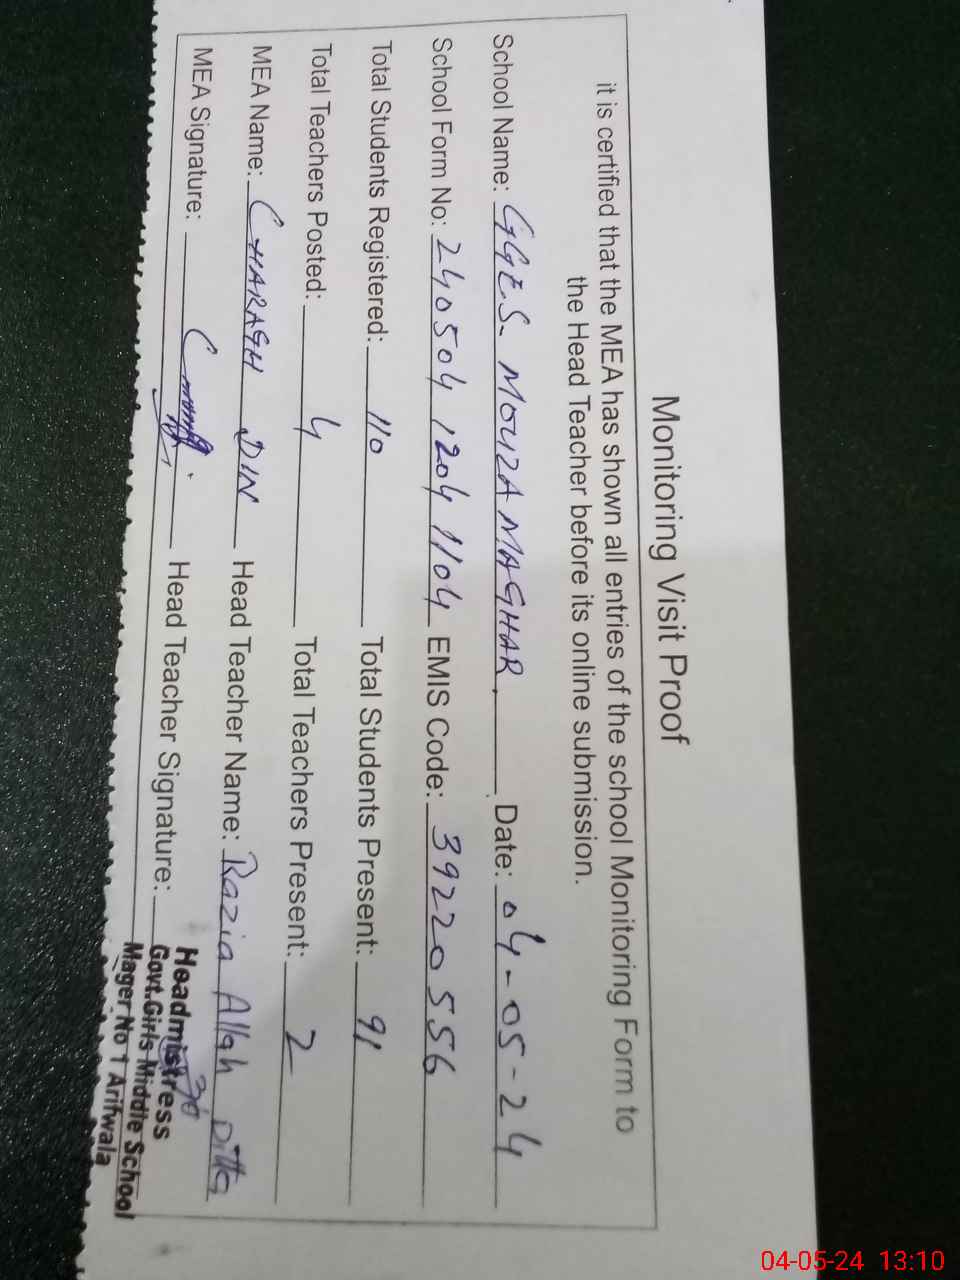 Monitoring Visit Proof
it is certified that the MEA has shown all entries of the school Monitoring Form to
the Head Teacher before its online submission.
School Name: GGES. MOUZA MAGHAR. Date: 04-05-24
School Form No: 240504 1204 1104 EMIS Code: 39220556
Total Students Registered: 110 Total Students Present: 91
Total Teachers Posted: 4 Total Teachers Present: 2
MEA Name: CHARAGH DIN Head Teacher Name: Razia Allah Ditta
MEA Signature: Head Teacher Signature:
Headmistress
Govt.Girls Middle School
Mager No 1 Arifwala
04-05-24 13:10